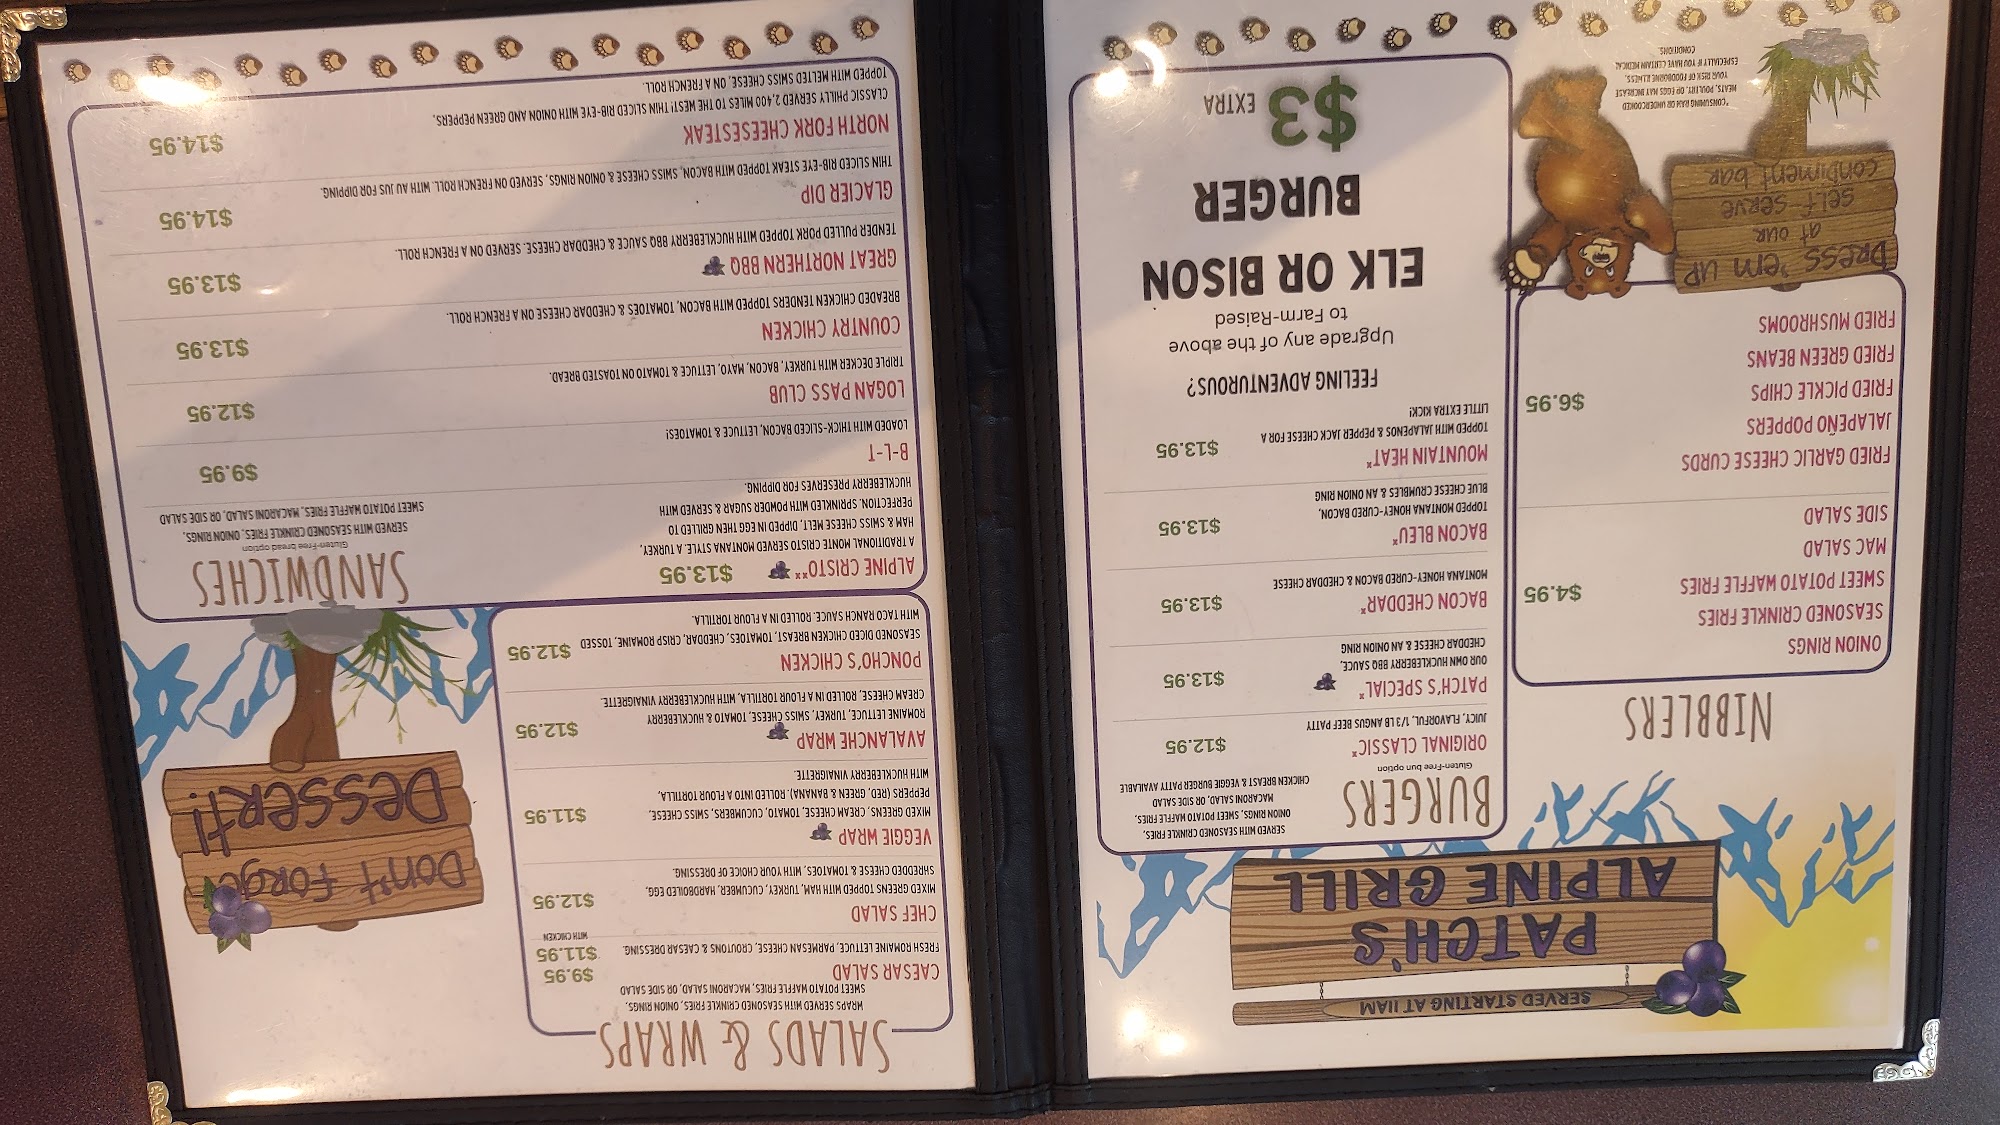 SERVED STARTING AT 11AM
PATCH'S
ALPINE GRILL
NIBBLERS
ONION RINGS
SEASONED CRINKLE FRIES
SWEET POTATO WAFFLE FRIES $4.95
MAC SALAD
SIDE SALAD
FRIED GARLIC CHEESE CURDS
JALAPEÑO POPPERS
FRIED PICKLE CHIPS $6.95
FRIED GREEN BEANS
FRIED MUSHROOMS
DRESS 'EM UP
at our
self-serve
condiment bar
*CONSUMING RAW OR UNDERCOOKED
MEATS, POULTRY, OR EGGS MAY INCREASE
YOUR RISK OF FOODBORNE ILLNESS,
ESPECIALLY IF YOU HAVE CERTAIN MEDICAL
CONDITIONS.
BURGERS
Gluten-Free bun option
SERVED WITH SEASONED CRINKLE FRIES,
ONION RINGS, SWEET POTATO WAFFLE FRIES,
MACARONI SALAD, OR SIDE SALAD
CHICKEN BREAST & VEGGIE BURGER PATTY AVAILABLE
ORIGINAL CLASSIC* $12.95
JUICY, FLAVORFUL, 1/3 LB ANGUS BEEF PATTY
PATCH'S SPECIAL* $13.95
OUR OWN HUCKLEBERRY BBQ SAUCE,
CHEDDAR CHEESE & AN ONION RING
BACON CHEDDAR* $13.95
MONTANA HONEY-CURED BACON & CHEDDAR CHEESE
BACON BLEU* $13.95
TOPPED MONTANA HONEY-CURED BACON,
BLUE CHEESE CRUMBLES & AN ONION RING
MOUNTAIN HEAT* $13.95
TOPPED WITH JALAPENOS & PEPPER JACK CHEESE FOR A
LITTLE EXTRA KICK!
FEELING ADVENTUROUS?
Upgrade any of the above
to Farm-Raised
ELK OR BISON
BURGER
$3 EXTRA
SALADS & WRAPS
WRAPS SERVED WITH SEASONED CRINKLE FRIES, ONION RINGS,
SWEET POTATO WAFFLE FRIES, MACARONI SALAD, OR SIDE SALAD
CAESAR SALAD $9.95
FRESH ROMAINE LETTUCE, PARMESAN CHEESE, CROUTONS & CAESAR DRESSING. $11.95
WITH CHICKEN
CHEF SALAD $12.95
MIXED GREENS TOPPED WITH HAM, TURKEY, CUCUMBER, HARDBOILED EGG,
SHREDDED CHEESE & TOMATOES, WITH YOUR CHOICE OF DRESSING.
VEGGIE WRAP $11.95
MIXED GREENS, CREAM CHEESE, TOMATO, CUCUMBERS, SWISS CHEESE,
PEPPERS (RED, GREEN & BANANA). ROLLED INTO A FLOUR TORTILLA,
WITH HUCKLEBERRY VINAIGRETTE.
AVALANCHE WRAP $12.95
ROMAINE LETTUCE, TURKEY, SWISS CHEESE, TOMATO & HUCKLEBERRY
CREAM CHEESE, ROLLED IN A FLOUR TORTILLA, WITH HUCKLEBERRY VINAIGRETTE.
PONCHO'S CHICKEN $12.95
SEASONED DICED CHICKEN BREAST, TOMATOES, CHEDDAR, CRISP ROMAINE, TOSSED
WITH TACO RANCH SAUCE. ROLLED IN A FLOUR TORTILLA.
Don't Forget
Dessert!
SANDWICHES
Gluten-Free bread option
SERVED WITH SEASONED CRINKLE FRIES, ONION RINGS,
SWEET POTATO WAFFLE FRIES, MACARONI SALAD, OR SIDE SALAD
ALPINE CRISTO** $13.95
A TRADITIONAL MONTE CRISTO SERVED MONTANA STYLE. A TURKEY,
HAM & SWISS CHEESE MELT, DIPPED IN EGG THEN GRILLED TO
PERFECTION. SPRINKLED WITH POWDER SUGAR & SERVED WITH
HUCKLEBERRY PRESERVES FOR DIPPING.
B-L-T $9.95
LOADED WITH THICK-SLICED BACON, LETTUCE & TOMATOES!
LOGAN PASS CLUB $12.95
TRIPLE DECKER WITH TURKEY, BACON, MAYO, LETTUCE & TOMATO ON TOASTED BREAD.
COUNTRY CHICKEN $13.95
BREADED CHICKEN TENDERS TOPPED WITH BACON, TOMATOES & CHEDDAR CHEESE ON A FRENCH ROLL.
GREAT NORTHERN BBQ $13.95
TENDER PULLED PORK TOPPED WITH HUCKLEBERRY BBQ SAUCE & CHEDDAR CHEESE. SERVED ON A FRENCH ROLL.
GLACIER DIP $14.95
THIN SLICED RIB-EYE STEAK TOPPED WITH BACON, SWISS CHEESE & ONION RINGS, SERVED ON FRENCH ROLL. WITH AU JUS FOR DIPPING.
NORTH FORK CHEESESTEAK $14.95
CLASSIC PHILLY SERVED 2,400 MILES TO THE WEST! THIN SLICED RIB-EYE WITH ONION AND GREEN PEPPERS,
TOPPED WITH MELTED SWISS CHEESE, ON A FRENCH ROLL.